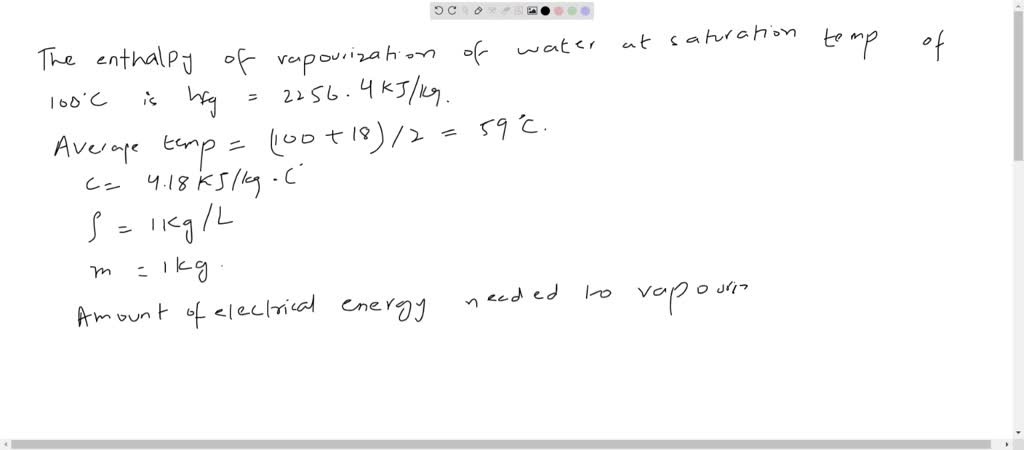 The enthalpy of vapourization of water at saturation temp of
100°C is hfg = 2256.4 KJ/kg.
Average temp = (100+18)/2 = 59°C.
C= 4.18 KJ/kg.C°
ρ = 1 Kg/L
m = 1 kg.
Amount of electrical energy needed to vapouriz